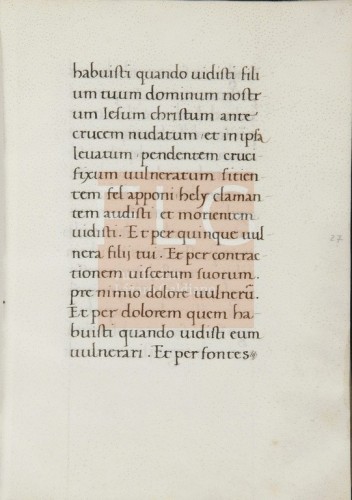 habuisti quando uidisti fili
um tuum dominum nostr
um Iesum christum ante
crucem nudatum et in ipsa
leuatum pendentem cruci
fixum uulneratum sitien
tem fel apponi hely claman
tem audisti et morientem
uidisti. Et per quinque uul
nera filij tui. Et per contrac
tionem uiscerum suorum.
pre nimio dolore uulnerũ.
Et per dolorem quem ha
buisti quando uidisti eum
uulnerari. Et per fontes
27
FLG